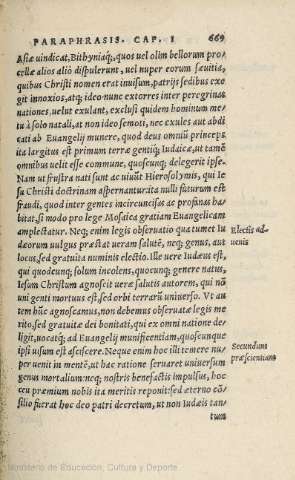 PARAPHRASIS. CAP. I 669
Asiæ vindicat, Bithyniaq́, quos uel olim bellorum pro=
cellæ alios alió dispulerunt, uel nuper eorum sæuitia,
quibus Christi nomen erat inuisum, patrijs sedibus exe
git innoxios, atq; ideo nunc extorres inter peregrinas
nationes, uelut exulant, exclusi quidem hominum me=
tu à solo natali, at non ideo semoti, nec exules aut abdi
cati ab Euangelij munere, quod deus omniũ princeps
ita largitus est primum terræ gentiq́; Iudaicæ, ut tamẽ
omnibus uelit esse commune, quoscunq; delegerit ipse.
Nam ut frustra nati sunt ac uiuũt Hierosolymis, qui Ie
su Christi doctrinam aspernantur: ita nulli futurum est
fraudi, quod inter gentes incircuncisas ac profanas ha=
bitat, si modo pro lege Mosaica gratiam Euangelicam
amplectatur. Neq; enim legis obseruatio quatumet Iu
dæorum uulgus præstat ueram salutẽ, neq; genus, aut
locus, sed gratuita numinis electio. Ille uere Iudæus est,
qui quodcunq; solum incolens, quocunq; genere natus,
Iesum Christum agnoscit ueræ salutis autorem, qui nõ
uni genti mortuus est, sed orbi terrarũ uniuerso. Vt au
tem hũc agnoscamus, non debemus obseruatæ legis me
rito, sed gratuitæ dei bonitati, qui ex omni natione de=
ligit, uocatq́; ad Euangelij munificentiam, quoscunque
ipsi uisum est asciscere. Neque enim hoc illi temere nu=
per uenit in mentẽ, ut hac ratione seruaret uniuersum
genus mortalium: neq; nostris benefactis impulsus, hoc
ceu præmium nobis ita meritis reponit: sed æterno cõ=
silio fuerat hoc deo patri decretum, ut non Iudæis tan=
tum
Electis ad=
uenis
Secundum
præscientiam
Ministerio de Educación, Cultura y Deporte